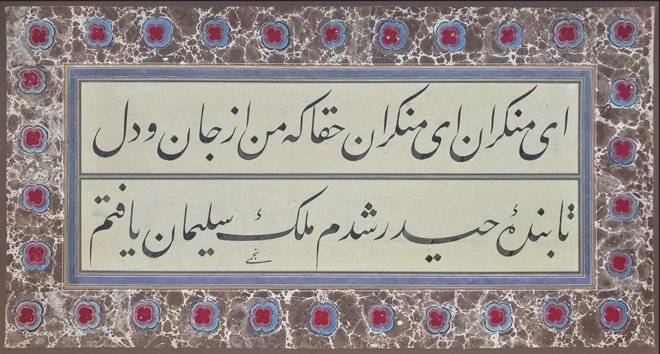 ای منکران ای منکران حقا که من از جان و دل
تا بندهٔ حیدر شدم ملک سلیمان یافتم